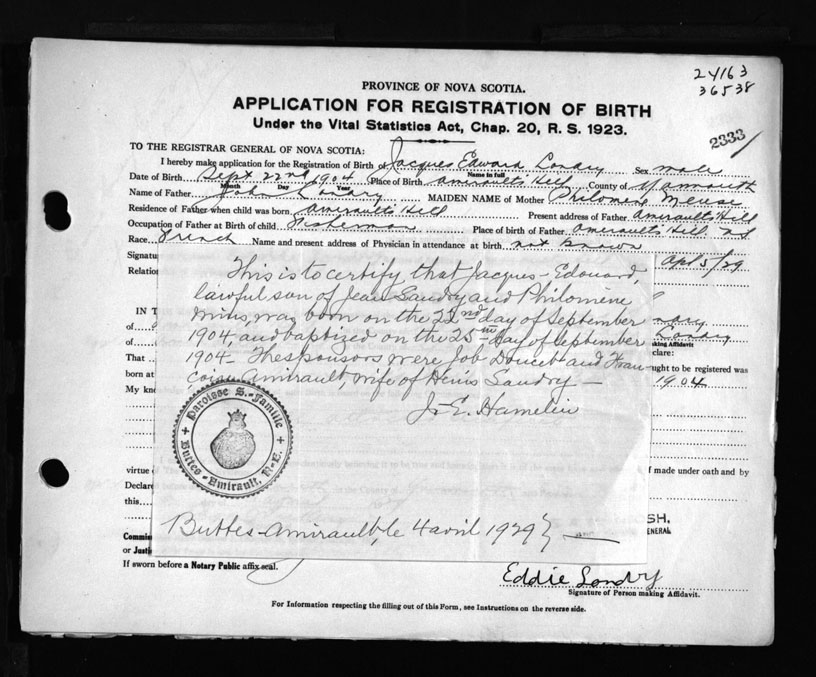 24163
36538
PROVINCE OF NOVA SCOTIA.
APPLICATION FOR REGISTRATION OF BIRTH
Under the Vital Statistics Act, Chap. 20, R. S. 1923.
2333/
TO THE REGISTRAR GENERAL OF NOVA SCOTIA:
I hereby make application for the Registration of Birth of Jacques Edward Landry Sex male
Name in full
Date of Birth Sept 22nd 1904 Place of Birth Amirault's Hill County of Yarmouth
Month Day Year
Name of Father John Landry MAIDEN NAME of Mother Philomen Meuse
Residence of Father when child was born Amirault's Hill Present address of Father Amirault's Hill
Occupation of Father at Birth of child Fisherman Place of birth of Father Amirault's Hill N.S.
Race French Name and present address of Physician in attendance at birth not known
Signatu Apl 5/29
Relation
This is to certify that Jacques-Edouard,
lawful son of Jean Landry and Philomène
Mius, was born on the 22nd day of September
1904, and baptized on the 25th day of September
1904 - The sponsors were Job Doucet and Fran-
çoise Amirault, wife of Denis Landry -
J. E. Hamelin
Paroisse S.-Famille
Buttes-Amirault, N-E.
Buttes-Amirault, le 4 avril 1929
IN T
of
of Landry
aking Affidavit
That clare:
born at ught to be registered was
1904
My kno
virtue f made under oath and by
Declare
this
SH.
GENERAL
Commis
or Justi
If sworn before a Notary Public affix seal.
Eddie Landry
Signature of Person making Affidavit.
For Information respecting the filling out of this Form, see Instructions on the reverse side.